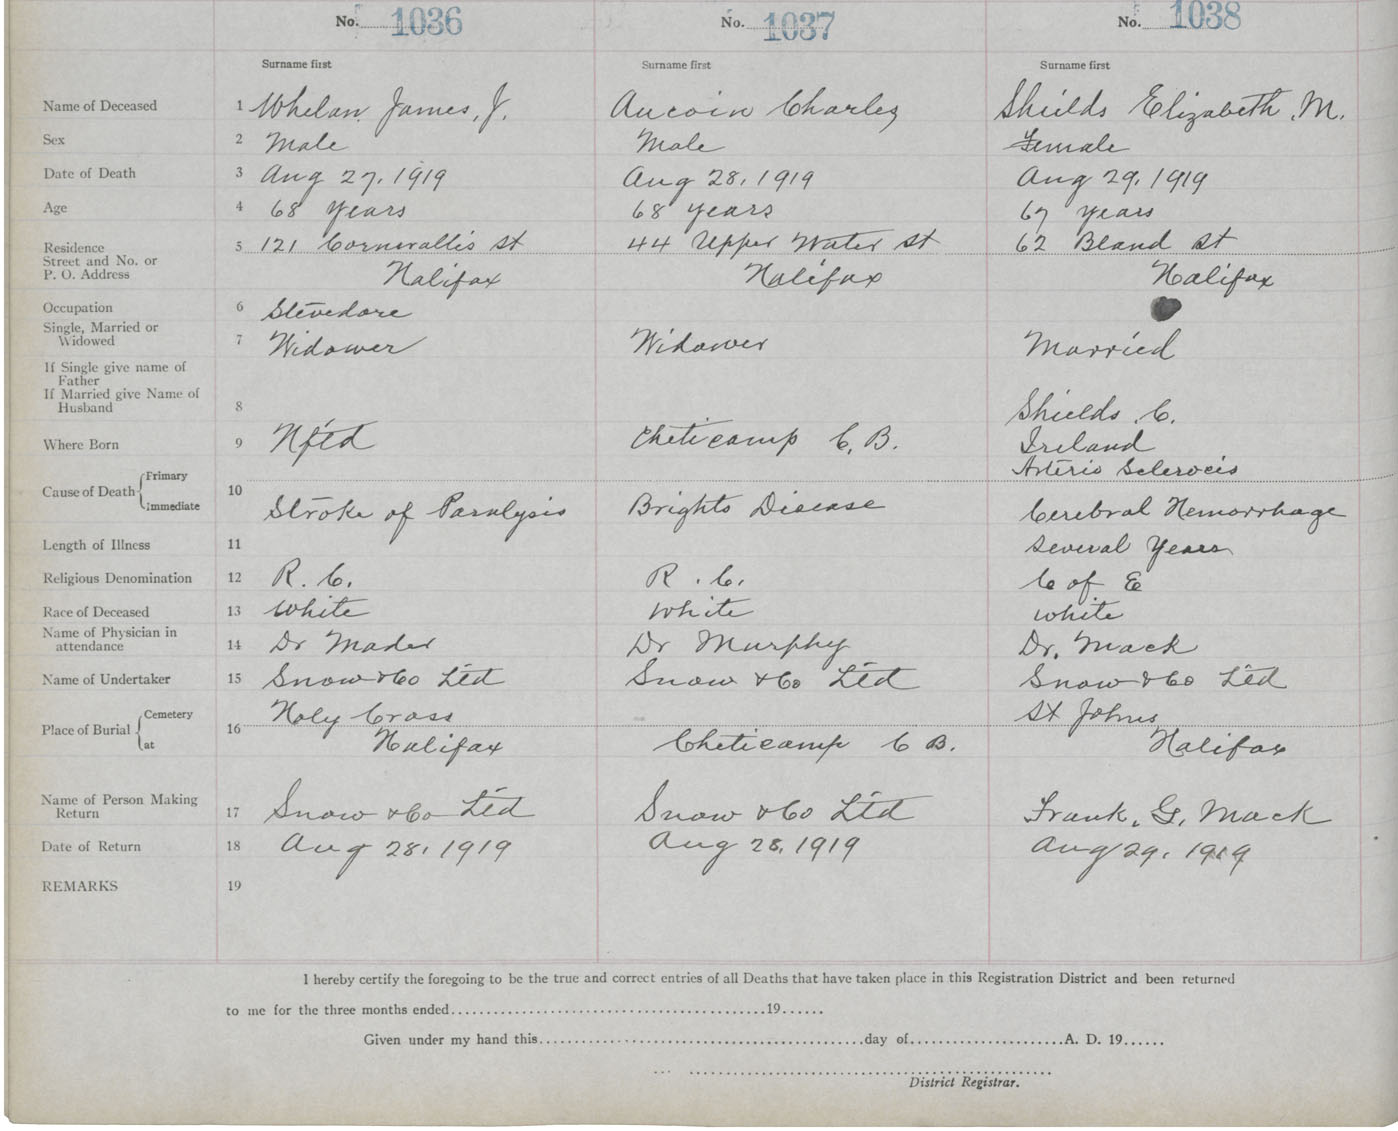 No. 1036 No. 1037 No. 1038
Surname first Surname first Surname first
Name of Deceased 1 Whelan James, J. Aucoin Charles Shields Elizabeth, M.
Sex 2 Male Male Female
Date of Death 3 Aug 27, 1919 Aug 28, 1919 Aug 29, 1919
Age 4 68 years 68 years 67 years
Residence
Street and No. or 5 121 Cornwallis St 44 Upper Water St 62 Bland St
P. O. Address Halifax Halifax Halifax
Occupation 6 Stevedore
Single, Married or
Widowed 7 Widower Widower Married
If Single give name of
Father
If Married give Name of
Husband 8 Shields, C.
Where Born 9 Nfld Cheticamp C. B. Ireland
Cause of Death Primary 10 Arterio Sclerocis
Immediate Stroke of Paralysis Brights Disease Cerebral Hemorrhage
Length of Illness 11 Several Years
Religious Denomination 12 R. C. R. C. C of E
Race of Deceased 13 White White white
Name of Physician in
attendance 14 Dr Mader Dr Murphy Dr. Mack
Name of Undertaker 15 Snow & Co Ltd Snow & Co Ltd Snow & Co Ltd
Place of Burial Cemetery 16 Holy Cross St Johns
at Halifax Cheticamp C B. Halifax
Name of Person Making
Return 17 Snow & Co Ltd Snow & Co Ltd Frank, G, Mack
Date of Return 18 Aug 28, 1919 Aug 28, 1919 Aug 29, 1919
REMARKS 19
I hereby certify the foregoing to be the true and correct entries of all Deaths that have taken place in this Registration District and been returned
to me for the three months ended..........19......
Given under my hand this..........day of..........A. D. 19......
District Registrar.